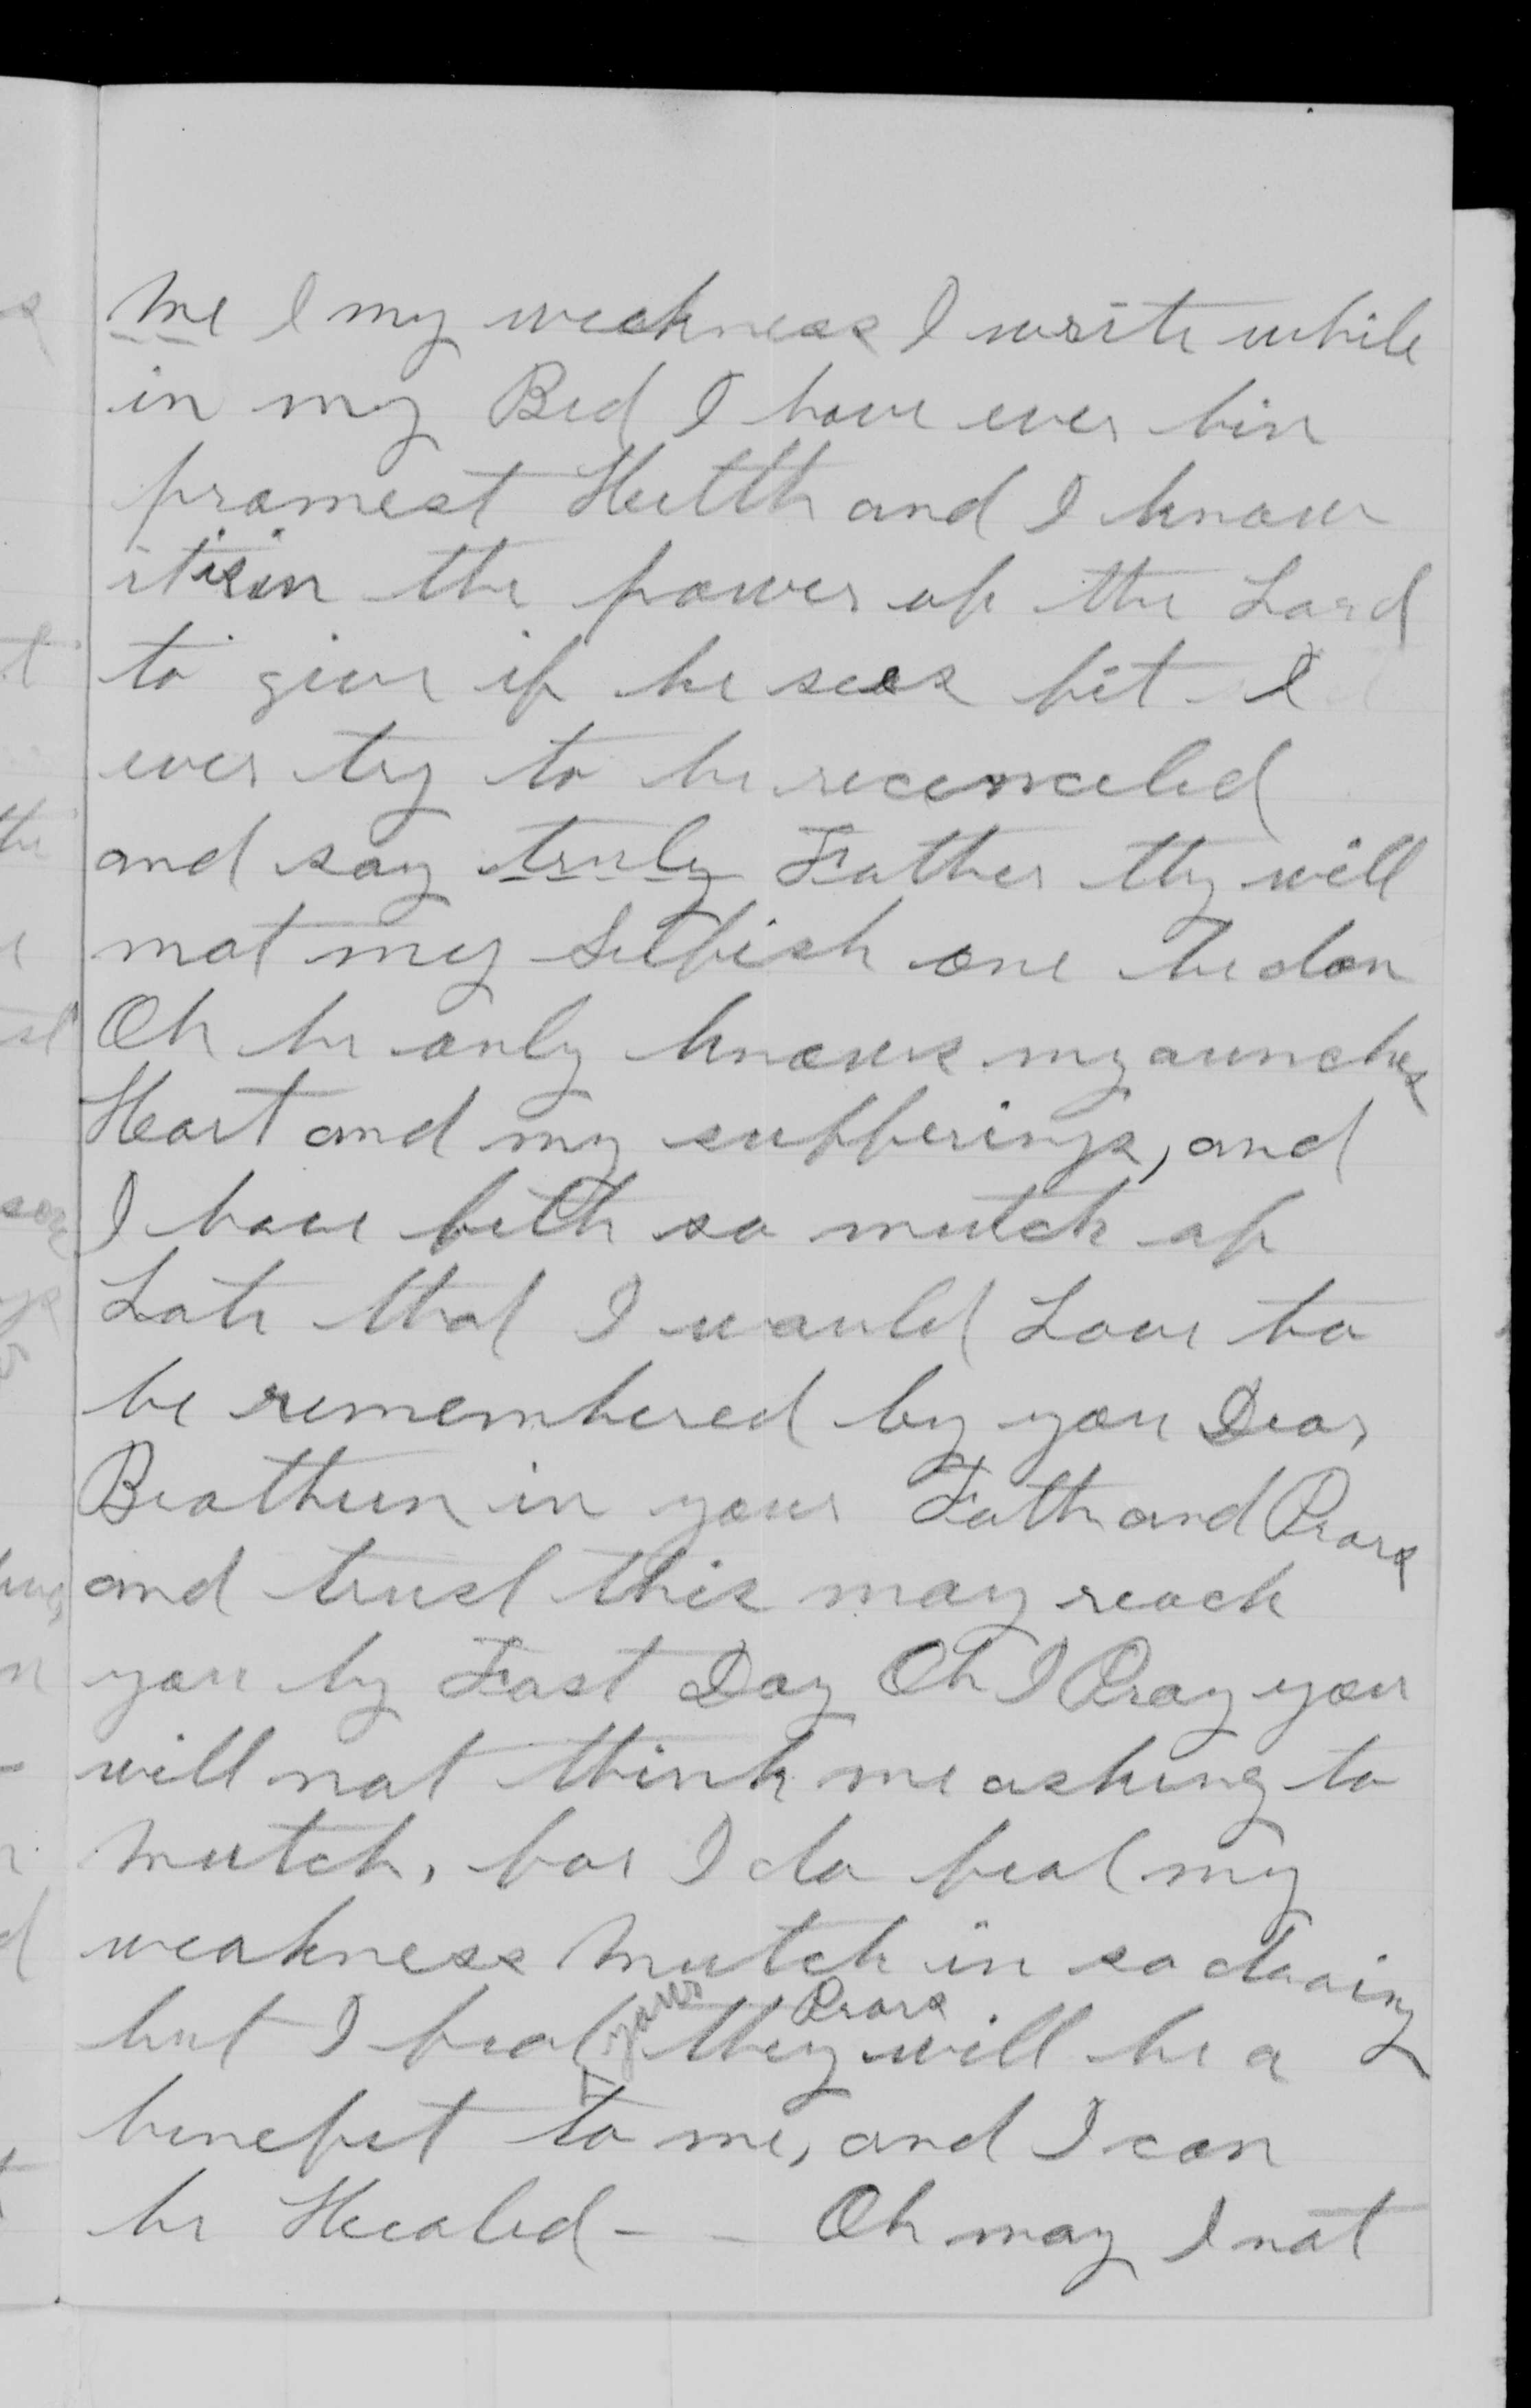 me I my weekness I write while
in my Bed I have ever bin
promest Helth and I know
it is in the power of the Lord
to give if he sees fit - I
ever try to be reconceled
and say truly Father thy will
not my Selfish one be don
Oh he only knows my
Heart and my sufferings, and
I have felth so mutch of
Late that I would Love to
be remembered by you Dear
Breatheren in your Fath and Prars
and trust this may reach
you by Fast Day Oh I Pray you
will not think me asking to
mutch, for I do feal my
weakness mutch in so doaing
but I feal your Prars they will be a
benefet to me, and I can
be Healed - - Oh may I not